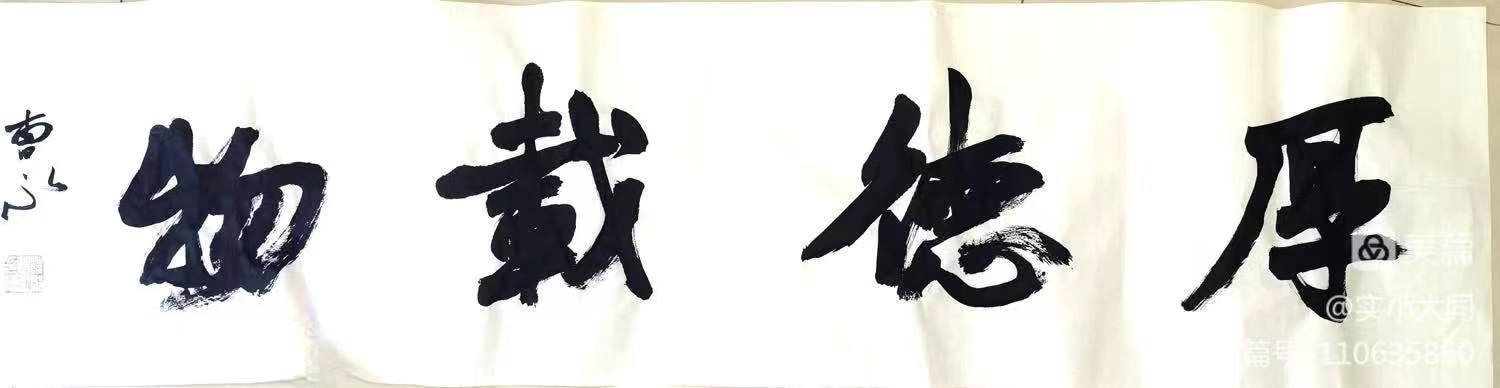 厚德载物
曹
美篇
@实小大同
篇号 110635860